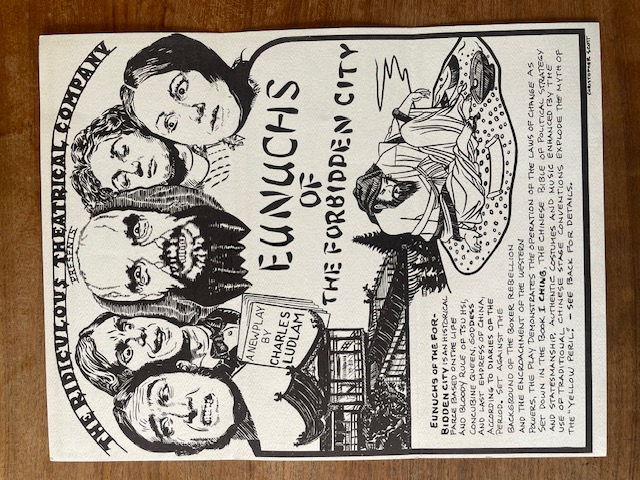 THE RIDICULOUS THEATRICAL COMPANY
PRESENTS
EUNUCHS
OF
THE FORBIDDEN CITY
A NEW PLAY
BY
CHARLES
LUDLAM
EUNUCHS OF THE FOR-
BIDDEN CITY IS AN HISTORICAL
FARCE BASED ON THE LIFE
AND BLOODY RULE OF TSU HSI,
CONCUBINE, QUEEN, GODDESS
AND LAST EMPRESS OF CHINA,
ACCORDING TO DIARIES OF THE
PERIOD. SET AGAINST THE
BACKGROUND OF THE BOXER REBELLION
AND THE ENCROACHMENT OF THE WESTERN
POWERS, THE PLAY DEMONSTRATES THE OPERATION OF THE LAWS OF CHANGE AS
SET DOWN IN THE BOOK, I CHING, THE CHINESE BIBLE OF POLITICAL STRATEGY
AND STATESMANSHIP. AUTHENTIC COSTUMES AND MUSIC ENHANCED BY THE
USE OF TRADITIONAL CHINESE STAGE CONVENTIONS EXPLODE THE MYTH OF
THE "YELLOW PERIL." — SEE BACK FOR DETAILS.
CHRISTOPHER SCOTT